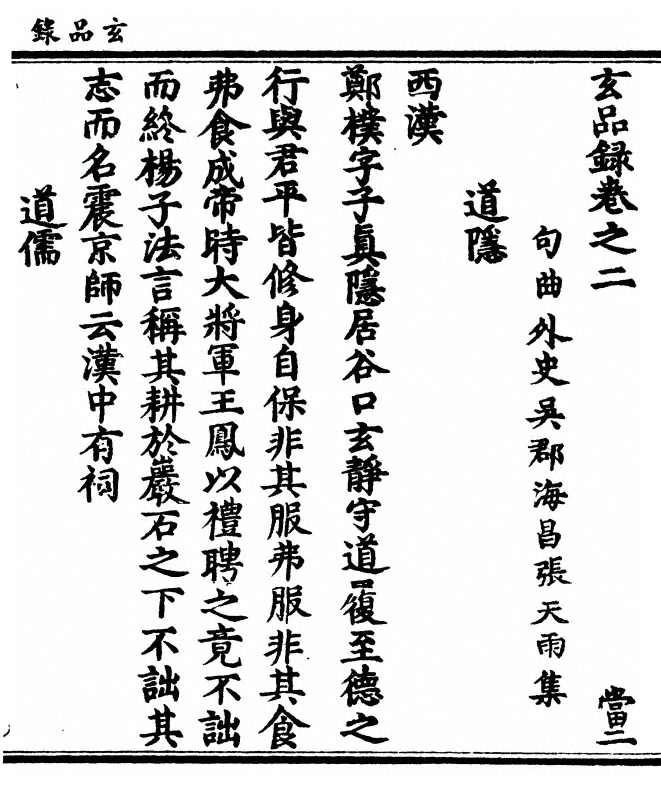 玄品錄
玄品録卷之二
當二
句曲外史吳郡海昌張天雨集
道隱
西漢
鄭樸字子眞隱居谷口玄靜守道復至德之
行與君平皆修身自保非其服弗服非其食
弗食成帝時大將軍王鳳以禮聘之竟不詘
而終楊子法言稱其耕於巖石之下不詘其
志而名震京師云漢中有祠
道儒